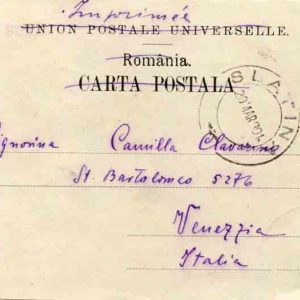 Imprimée
UNION POSTALE UNIVERSELLE.
România.
CARTA POSTALA
SLATINA
Signorina Camilla Clavarino
St. Bartolomeo 5276
Venezzia
Italia